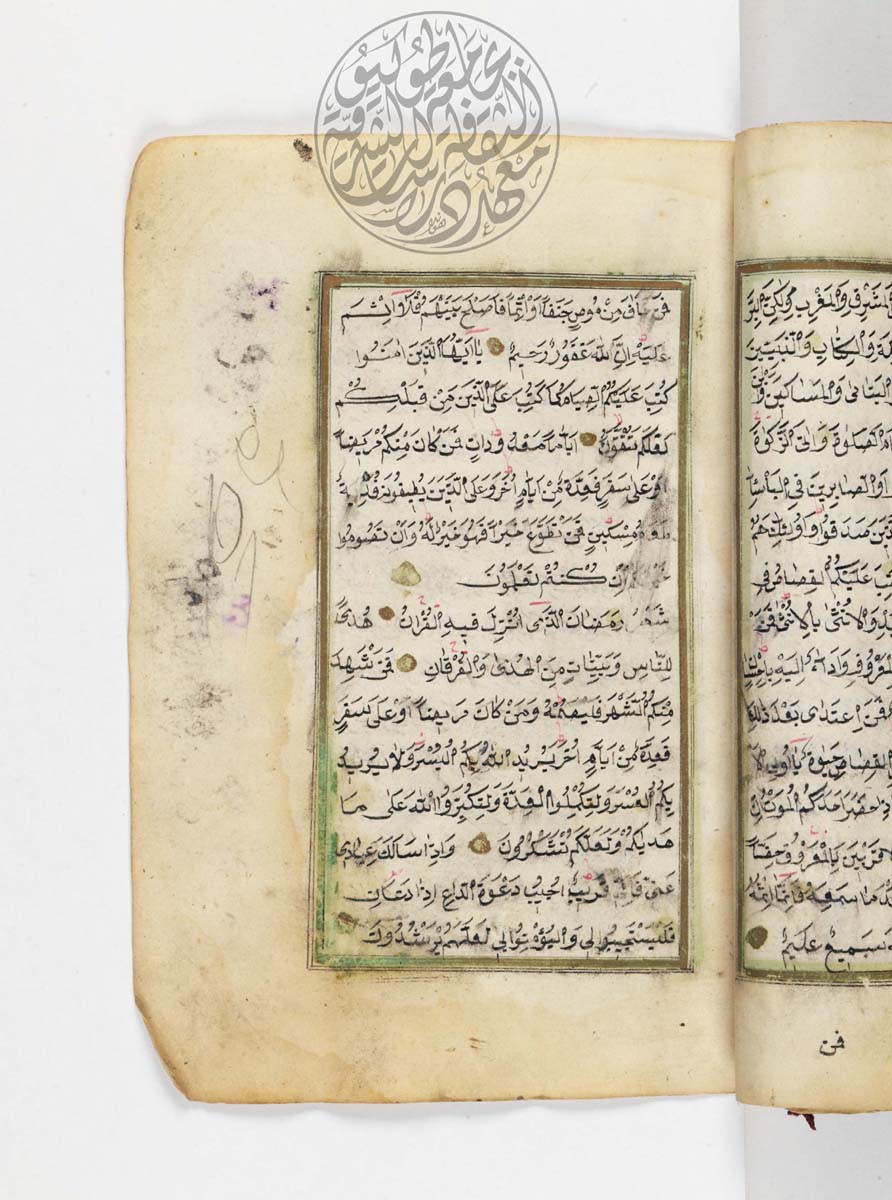 جامعة طوكيو
معهد دراسات الثقافة الشرقية
المشرق والمغرب ولكن البر
والكتاب والنبيين
واليتامى والمساكين وابن
الصلوة واتى الزكوة
والصابرين في الباساء
صدقوا واولئك هم
عليكم القصاص في
والانثى بالانثى فمن
واداء اليه باحسان
فمن اعتدى بعد ذلك
القصاص حيوة يا اولي الا
حضر احدكم الموت ان
بالمعروف حقا
ما سمعه فانما اثمه
سميع عليم
فمن
فمن خاف من موص جنفا او اثما فاصلح بينهم فلا اثم
عليه ان الله غفور رحيم يا ايها الذين امنوا
كتب عليكم الصيام كما كتب على الذين من قبلكم
لعلكم تتقون اياما معدودات فمن كان منكم مريضا
او على سفر فعدة من ايام اخر وعلى الذين يطيقونه فدية
طعام مسكين فمن تطوع خيرا فهو خير له وان تصوموا
خير لكم ان كنتم تعلمون
شهر رمضان الذى انزل فيه القران هدى
للناس وبينات من الهدى والفرقان فمن شهد
منكم الشهر فليصمه ومن كان مريضا او على سفر
فعدة من ايام اخر يريد الله بكم اليسر ولا يريد
بكم العسر ولتكملوا العدة ولتكبروا الله على ما
هديكم ولعلكم تشكرون واذا سالك عبادى
عنى فانى قريب اجيب دعوة الداع اذا دعان
فليستجيبوا لى واليؤمنوا بى لعلهم يرشدون